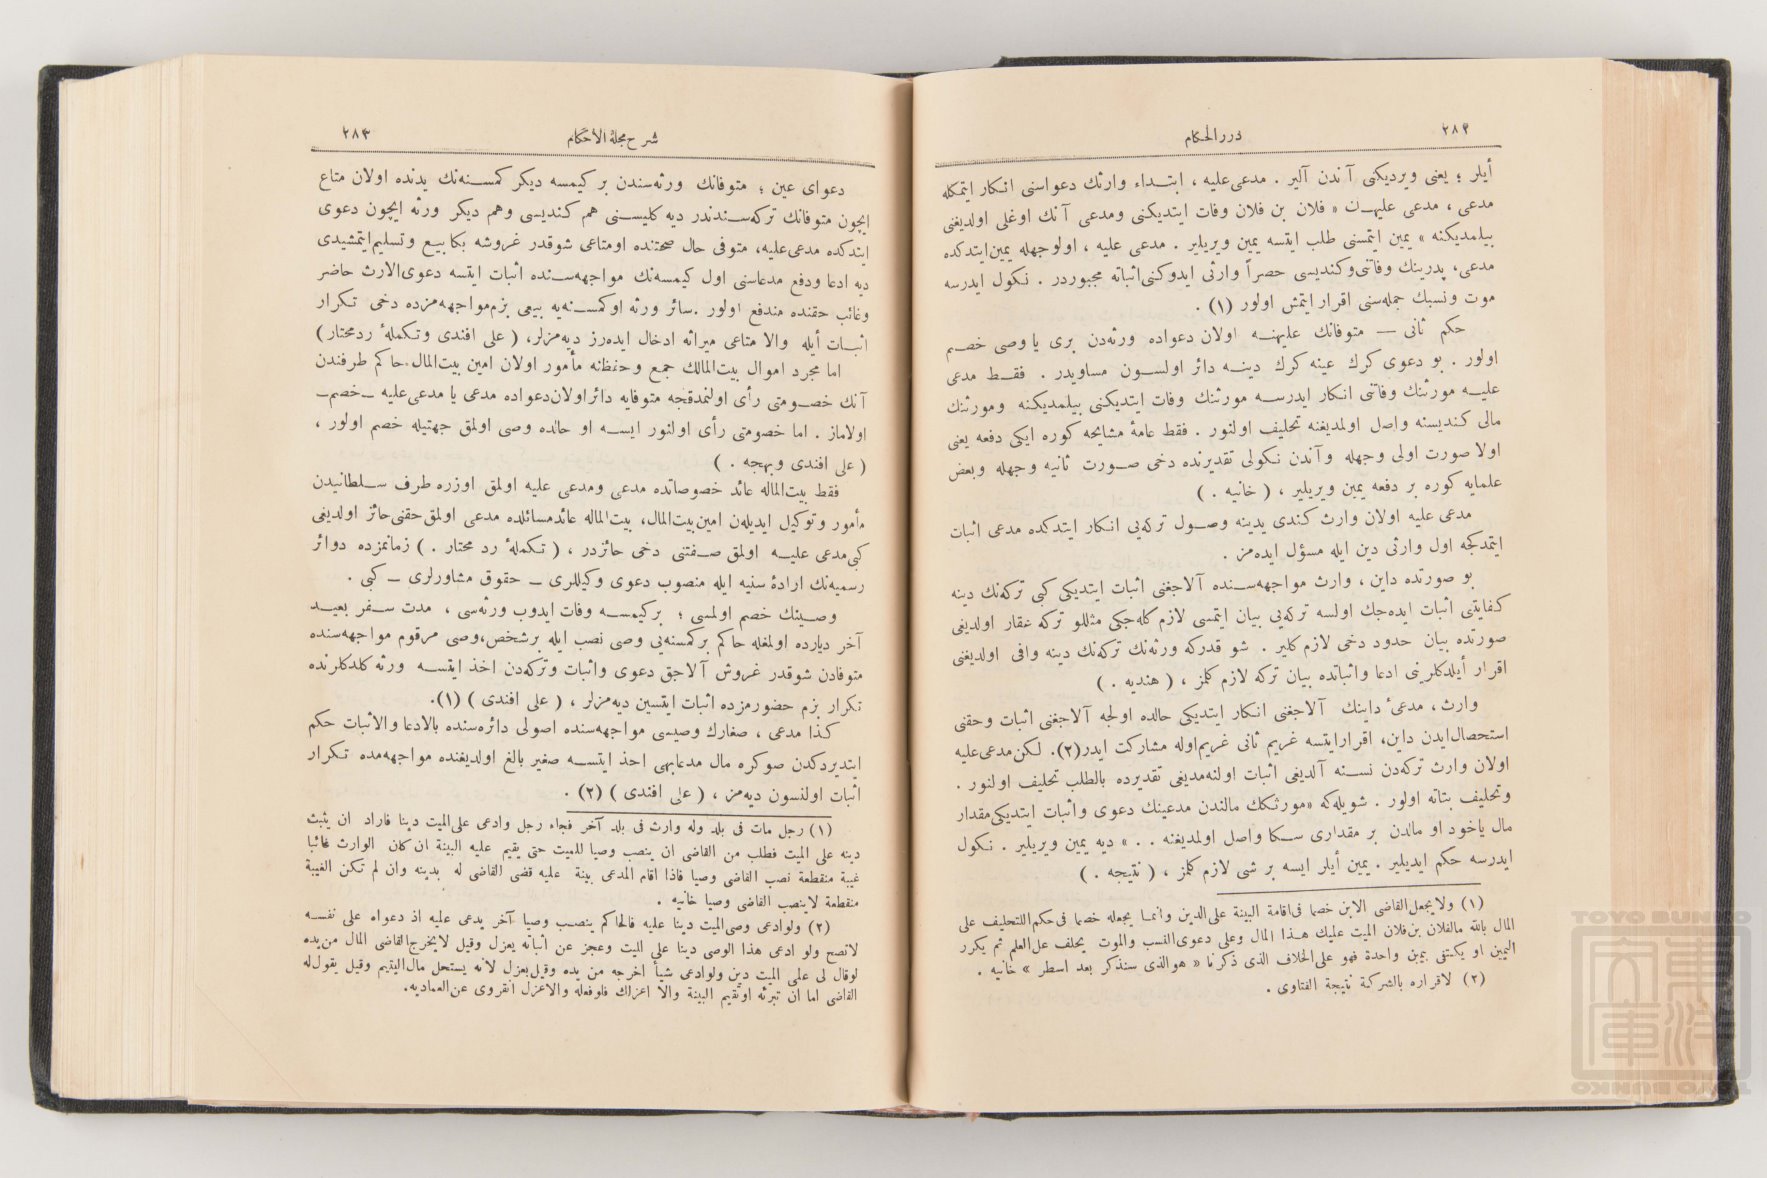 ٢٨٢
درر الحكام
أيلر ؛ يعنى ويرديكنى آندن آلير . مدعى‌عليه ، ابتـداء وارثك دعواسنى انكار ايتمكله
مدعى ، مدعى عليهـن « فلان بن فلان وفات ايتديكنى ومدعى آنك اوغلى اولديغنى
بيلمديكنه » يمين ايتمسنى طلب ايتسه يمين ويريلير . مدعى عليه ، اولوجهله يمين‌ايتدكده
مدعى، پدرينك وفاتنى‌وكنديسى حصراً وارثى ايدوكنى‌اثباته مجبوردر . نكول ايدرسه
موت ونسبك جمله‌سنى اقرار ايتمش اولور (١) .
حكم ثانى — متوفانك عليهنـه اولان دعواده ورثه‌دن برى يا وصى خصـم
اولور . بو دعوى كرك عينه كرك دينـه دائر اولسـون مساويدر . فقـط مدعى
عليـه مورثنك وفاتنى انكار ايدرسـه مورثنك وفات ايتديكنى بيلمديكنه ومورثنك
مالى كنديسنه واصل اولمديغنه تحليف اولنور . فقط عامهٔ مشايخه كوره ايكى دفعه يعنى
اولا صورت اولى وجهله وآندن نكولى تقديرنده دخى صـورت ثانيه وجهله وبعض
علمايه كوره بر دفعه يمين ويريلير ، ( خانيه . )
مدعى عليه اولان وارث كندى يدينه وصـول تركه‌يى انكار ايتدكده مدعى اثبات
ايتمدكجه اول وارثى دين ايله مسؤل ايده‌مز .
بو صورتده داين ، وارث مواجهه‌سـنده آلاجغنى اثبات ايتديكى كبى تركه‌نك دينه
كفايتنى اثبات ايده‌جك اولسه تركه‌يى بيان ايتمسى لازم كله‌جكى مثللو تركه عقار اولديغى
صورتده بيان حدود دخى لازم كلير . شو قدركه ورثه‌نك تركه‌نك دينه وافى اولديغنى
اقرار أيلدكلرينى ادعا واثباتده بيان تركه لازم كلمز ، ( هنديه . )
وارث ، مدعىٔ داينك آلاجغنى انكار ايتديكى حالده اولجه آلاجغنى اثبات وحقنى
استحصال‌ايدن داين، اقرارايتسه غريم ثانى غريم‌اوله مشاركت ايدر(٢). لكن‌مدعى‌عليه
اولان وارث تركه‌دن نسـنه آلديغى اثبات اولنه‌مديغى تقديرده بالطلب تحليف اولنور .
وتحليف بتاته اولور . شويله‌كه «مورثكك مالندن مدعينك دعوى واثبات ايتديكى‌مقدار
مال ياخود او مالدن بر مقدارى سـكا واصل اولمديغنه . . » ديه يمين ويريلير . نكول
ايدرسه حكم ايديلير . يمين أيلر ايسه بر شى لازم كلمز ، ( نتيجه . )
(١) ولايجعل‌القاضى الابن خصما فى‌اقامة البينة على‌الدين وانمـا يجعله خصما فى‌حكم‌التحليف على
المال بالله مالفلان بن‌فلان الميت عليك هـذا المال وعلى دعوى‌النسب والموت يحلف على‌العلم ثم يكرر
اليمين او يكتفى بيمين واحدة فهو على‌الخلاف الذى ذكرنا « هوالذى سنذكر بعد اسطر » خانيه .
(٢) لاقراره بالشركة نتيجة الفتاوى .
شرح مجلة الأحكام
٢٨٣
دعواى عين ؛ متوفانك ورثه‌سندن بر كيمسه ديكر كمسـنه‌نك يدنده اولان متاع
ايچون متوفانك تركه‌سـندندر ديه كليسـنى هم كنديسى وهم ديكر ورثه ايچون دعوى
ايتدكده مدعى‌عليه، متوفى حال صحتنده اومتاعى شوقدر غروشه بكا بيـع وتسليم‌ايتمشيدى
ديه ادعا ودفع مدعاسنى اول كيمسه‌نك مواجهه‌سـنده اثبات ايتسه دعوى‌الارث حاضر
وغائب حقنده مندفع اولور . سائر ورثه اوكمسـنه‌يه بيعى بزم‌مواجهه‌مزده دخى تكرار
اثبـات أيله والا متاعى ميراثه ادخال ايده‌رز ديه‌مزلر، ( على افندى وتكملهٔ ردمحتار )
اما مجرد اموال بيت‌المالك جمع وحفظنه مأمور اولان امين بيت‌المال، حاكم طرفندن
آنك خصـومتى رأى اولنمدقجه متوفايه دائراولان‌دعواده مدعى يا مدعى‌عليه ـ خصم ـ
اولاماز . اما خصومتى رأى اولنور ايسـه او حالده وصى اولمق جهتيله خصم اولور ،
( على افندى وبهجه . )
فقط بيت‌الماله عائد خصوصاتده مدعى ومدعى عليه اولمق اوزره طرف سـلطانيدن
مأمور وتوكيل ايديلەن امين‌بيت‌المال، بيت‌الماله عائدمسائلده مدعى اولمق‌حقنى‌حائز اولديغى
كبى‌مدعى عليـه اولمق صـفتنى دخى حائزدر ، ( تكملهٔ رد محتار . ) زمانمزده دوائر
رسميه‌نك ارادهٔ سنيه ايله منصوب دعوى وكيللرى ـ حقوق مشاورلرى ـ كبى .
وصـينك خصم اولمسى ؛ بركيمسـه وفات ايدوب ورثه‌سى ، مدت سـفر بعيـد
آخر ديارده اولمغله حاكم بركمسنه‌يى وصى نصب ايله برشخص،وصى مرقوم مواجهه‌سنده
متوفادن شوقدر غروش آلاجق دعوى واثبات وتركه‌دن اخذ ايتسـه ورثه كلدكلرنده
تكرار بزم حضورمزده اثبات ايتسين ديه‌مزلر ، ( على افندى ) (١).
كذا مدعى ، صغارك وصيسى مواجهه‌سنده اصولى دائره‌سنده بالادعا والاثبات حكم
ايتديردكدن صوكره مال مدعابهى اخذ ايتسـه صغير بالغ اولديغنده مواجهه‌مده تكرار
اثبات اولنسون ديه‌مز ، ( على افندى ) (٢) .
(١) رجل مات فى بلد وله وارث فى بلد آخر فجاء رجل وادعى على‌الميت دينا فاراد ان يثبت
دينه على الميت فطلب من القاضى ان ينصب وصيا للميت حتى يقيم عليه البينة ان كان الوارث غائبا
غيبة منقطعة نصب القاضى وصيا فاذا اقام المدعى بينة عليه قضى القاضى له بدينه وان لم تكن الغيبة
منقطعة لاينصب القاضى وصيا خانيه .
(٢) ولوادعى وصى‌الميت دينا عليه فالحاكم ينصـب وصيا آخر يدعى عليه اذ دعواه على نفسـه
لاتصح ولو ادعى هذا الوصى دينا على الميت وعجز عن اثباته يعزل وقيل لايخرج‌القاضى المال من‌يده
لوقال لى على الميت دين ولوادعى شيأ اخرجه من يده وقيل‌يعزل لأنه يستحل مال‌اليتيم وقيل يقول‌له
القاضى اما ان تبرئه اوتقيم البينة والا اعزلك فلوفعله والاعزل انقروى عن‌العماديه.
TOYO BUNKO
東洋文庫
TOYO BUNKO